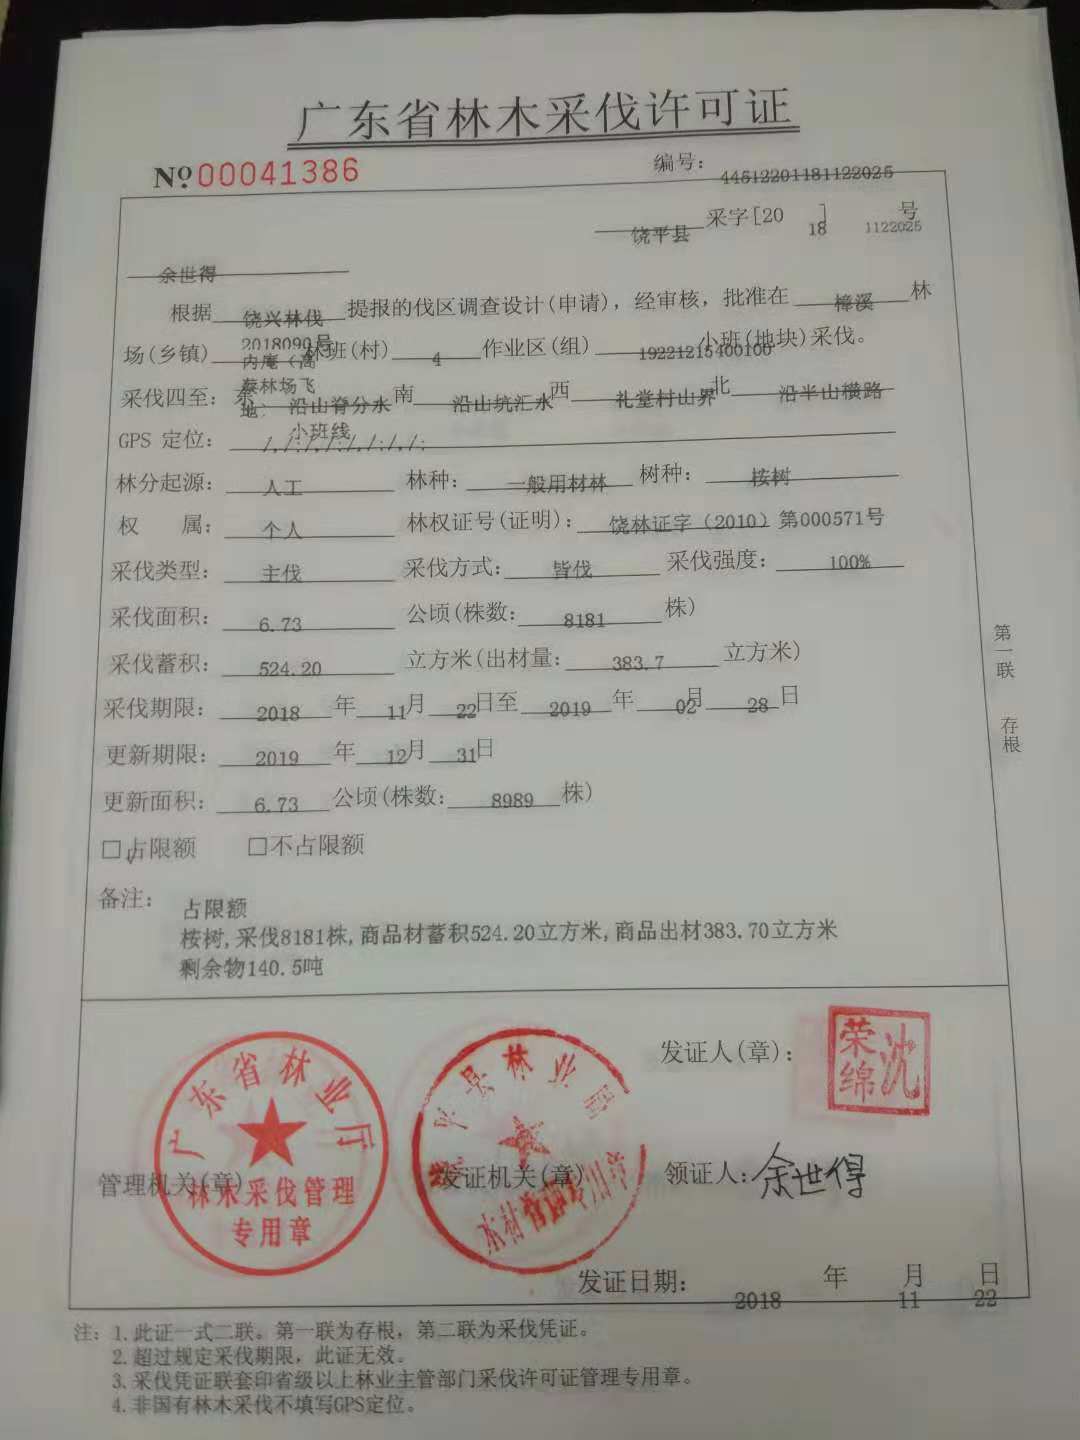 广东省林木采伐许可证
№00041386 编号: 44512201181122025
饶平县 采字[20 18 ] 1122025 号
余世得
根据 饶兴林伐2018090号 提报的伐区调查设计(申请)，经审核，批准在 樟溪 林
场(乡镇) 内庵（高蔡林场飞地） 林班(村) 4 作业区(组) 19221215400100 小班(地块)采伐。
采伐四至: 东 沿山脊分水小班线 南 沿山坑汇水 西 礼堂村山界 北 沿半山横路
GPS 定位: /,/:/,/:/,/:/,/:
林分起源: 人工 林种: 一般用材林 树种: 桉树
权 属: 个人 林权证号(证明): 饶林证字（2010）第000571号
采伐类型: 主伐 采伐方式: 皆伐 采伐强度: 100%
采伐面积: 6.73 公顷(株数: 8181 株)
采伐蓄积: 524.20 立方米(出材量: 383.7 立方米)
采伐期限: 2018 年 11 月 22 日至 2019 年 02 月 28 日
更新期限: 2019 年 12 月 31 日
更新面积: 6.73 公顷(株数: 8989 株)
□占限额 √ □不占限额
备注: 占限额
桉树,采伐8181株,商品材蓄积524.20立方米,商品出材383.70立方米
剩余物140.5吨
第一联 存根
发证人(章): 沈荣绵
广东省林业厅
林木采伐管理
专用章
饶平县林业局
木材管理专用章
管理机关(章) 发证机关(章) 领证人: 余世得
发证日期: 2018 年 11 月 22 日
注: 1.此证一式二联。第一联为存根，第二联为采伐凭证。
2.超过规定采伐期限，此证无效。
3.采伐凭证联套印省级以上林业主管部门采伐许可证管理专用章。
4.非国有林木采伐不填写GPS定位。